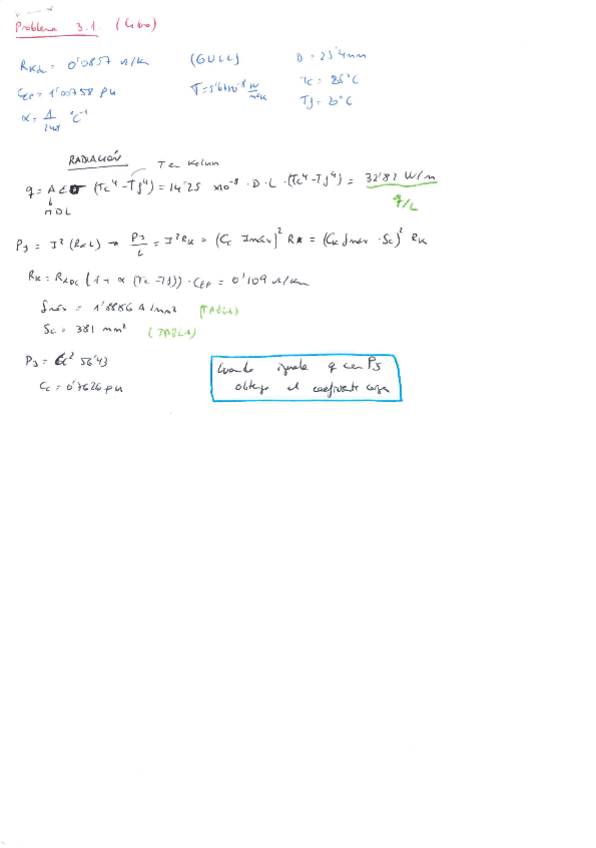 Problema 3.1. (Libro)
RKdc = 0'0857 Ω/km (GULL) D = 25'4mm
CEP = 1'00758 pu σ=5'67x10⁻⁸ W/m²K Tc = 85°C
α = 1/248 °C⁻¹ Tf = 20°C
RADIACIÓN T en Kelvin
q = A ε σ (Tc⁴ - Tf⁴) = 14'25 x10⁻⁸ · D · L · (Tc⁴ - Tf⁴) = 32'82 W/m
π D L q/L
PJ = I² (RK L) → PJ/L = I² RK = (Cc Imáx)² RK = (Cc Jmáx · Sc)² RK
RK = RKDC (1 + α (Tc - Tf)) · CEP = 0'109 Ω/km
Jmáx = 1'8886 A/mm² (TABLA)
Sc = 381 mm² (TABLA)
PJ = Cc² 56'43
Cc = 0'7626 pu
Cuando igualo q con PJ
obtengo el coeficiente carga